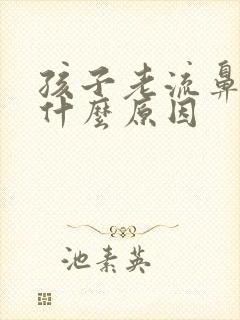 孩子老流鼻
什麼原因
池素英